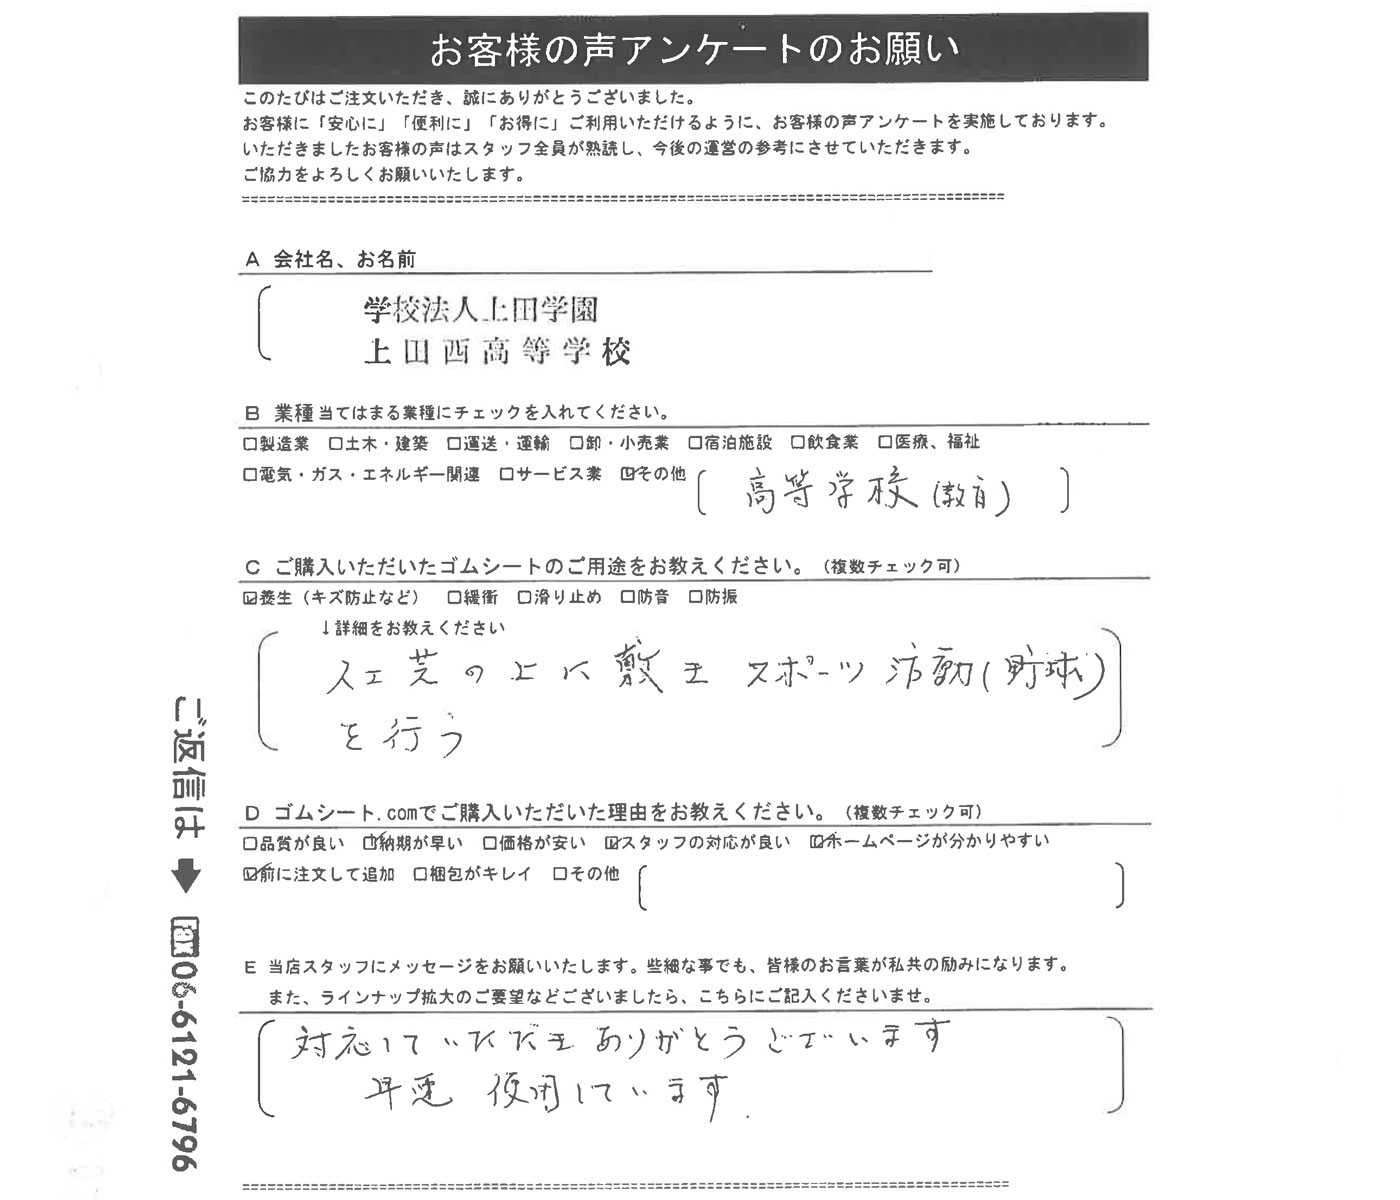 お客様の声アンケートのお願い
このたびはご注文いただき、誠にありがとうございました。
お客様に「安心に」「便利に」「お得に」ご利用いただけるように、お客様の声アンケートを実施しております。
いただきましたお客様の声はスタッフ全員が熟読し、今後の運営の参考にさせていただきます。
ご協力をよろしくお願いいたします。
A 会社名、お名前
学校法人上田学園
上田西高等学校
B 業種 当てはまる業種にチェックを入れてください。
□製造業 □土木・建築 □運送・運輸 □卸・小売業 □宿泊施設 □飲食業 □医療、福祉
□電気・ガス・エネルギー関連 □サービス業 ☑その他 [ 高等学校(教育) ]
C ご購入いただいたゴムシートのご用途をお教えください。(複数チェック可)
☑養生(キズ防止など) □緩衝 □滑り止め □防音 □防振
↓詳細をお教えください
人工芝の上に敷き スポーツ活動(野球)
を行う
D ゴムシート.comでご購入いただいた理由をお教えください。(複数チェック可)
□品質が良い ☑納期が早い □価格が安い ☑スタッフの対応が良い ☑ホームページが分かりやすい
☑前に注文して追加 □梱包がキレイ □その他 [ ]
E 当店スタッフにメッセージをお願いいたします。些細な事でも、皆様のお言葉が私共の励みになります。
また、ラインナップ拡大のご要望などございましたら、こちらにご記入くださいませ。
対応していただき ありがとうございます
早速 使用しています.
ご返信は➡fax06-6121-6796